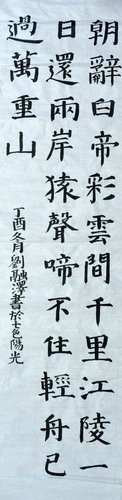 朝辭白帝彩雲間千里江陵一
日還兩岸猿聲啼不住輕舟已
過萬重山
丁酉冬月劉融澤書於七色陽光